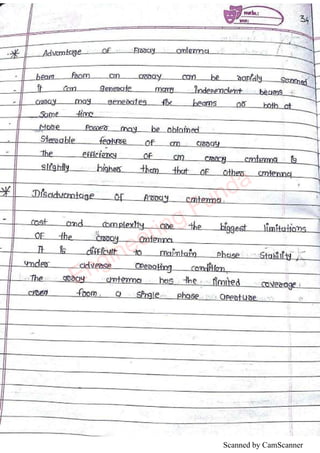 3.
* Advantage of Array antenna
beam from an array can be rapidly scanned
it can generate many independent beams
array may generates fix beams or both at
same time
More power may be obtained
Steerable feature of an array
The efficiency of an array antenna is
slightly higher then that of other antenna
* Disadvantage of Array antenna
cost and complexity are the biggest limitations
of the array antenna
It is difficult to maintain phase stability
under adverse operating condition.
The array antenna has the limited coverage
from a single phase aperature
Scanned by CamScanner